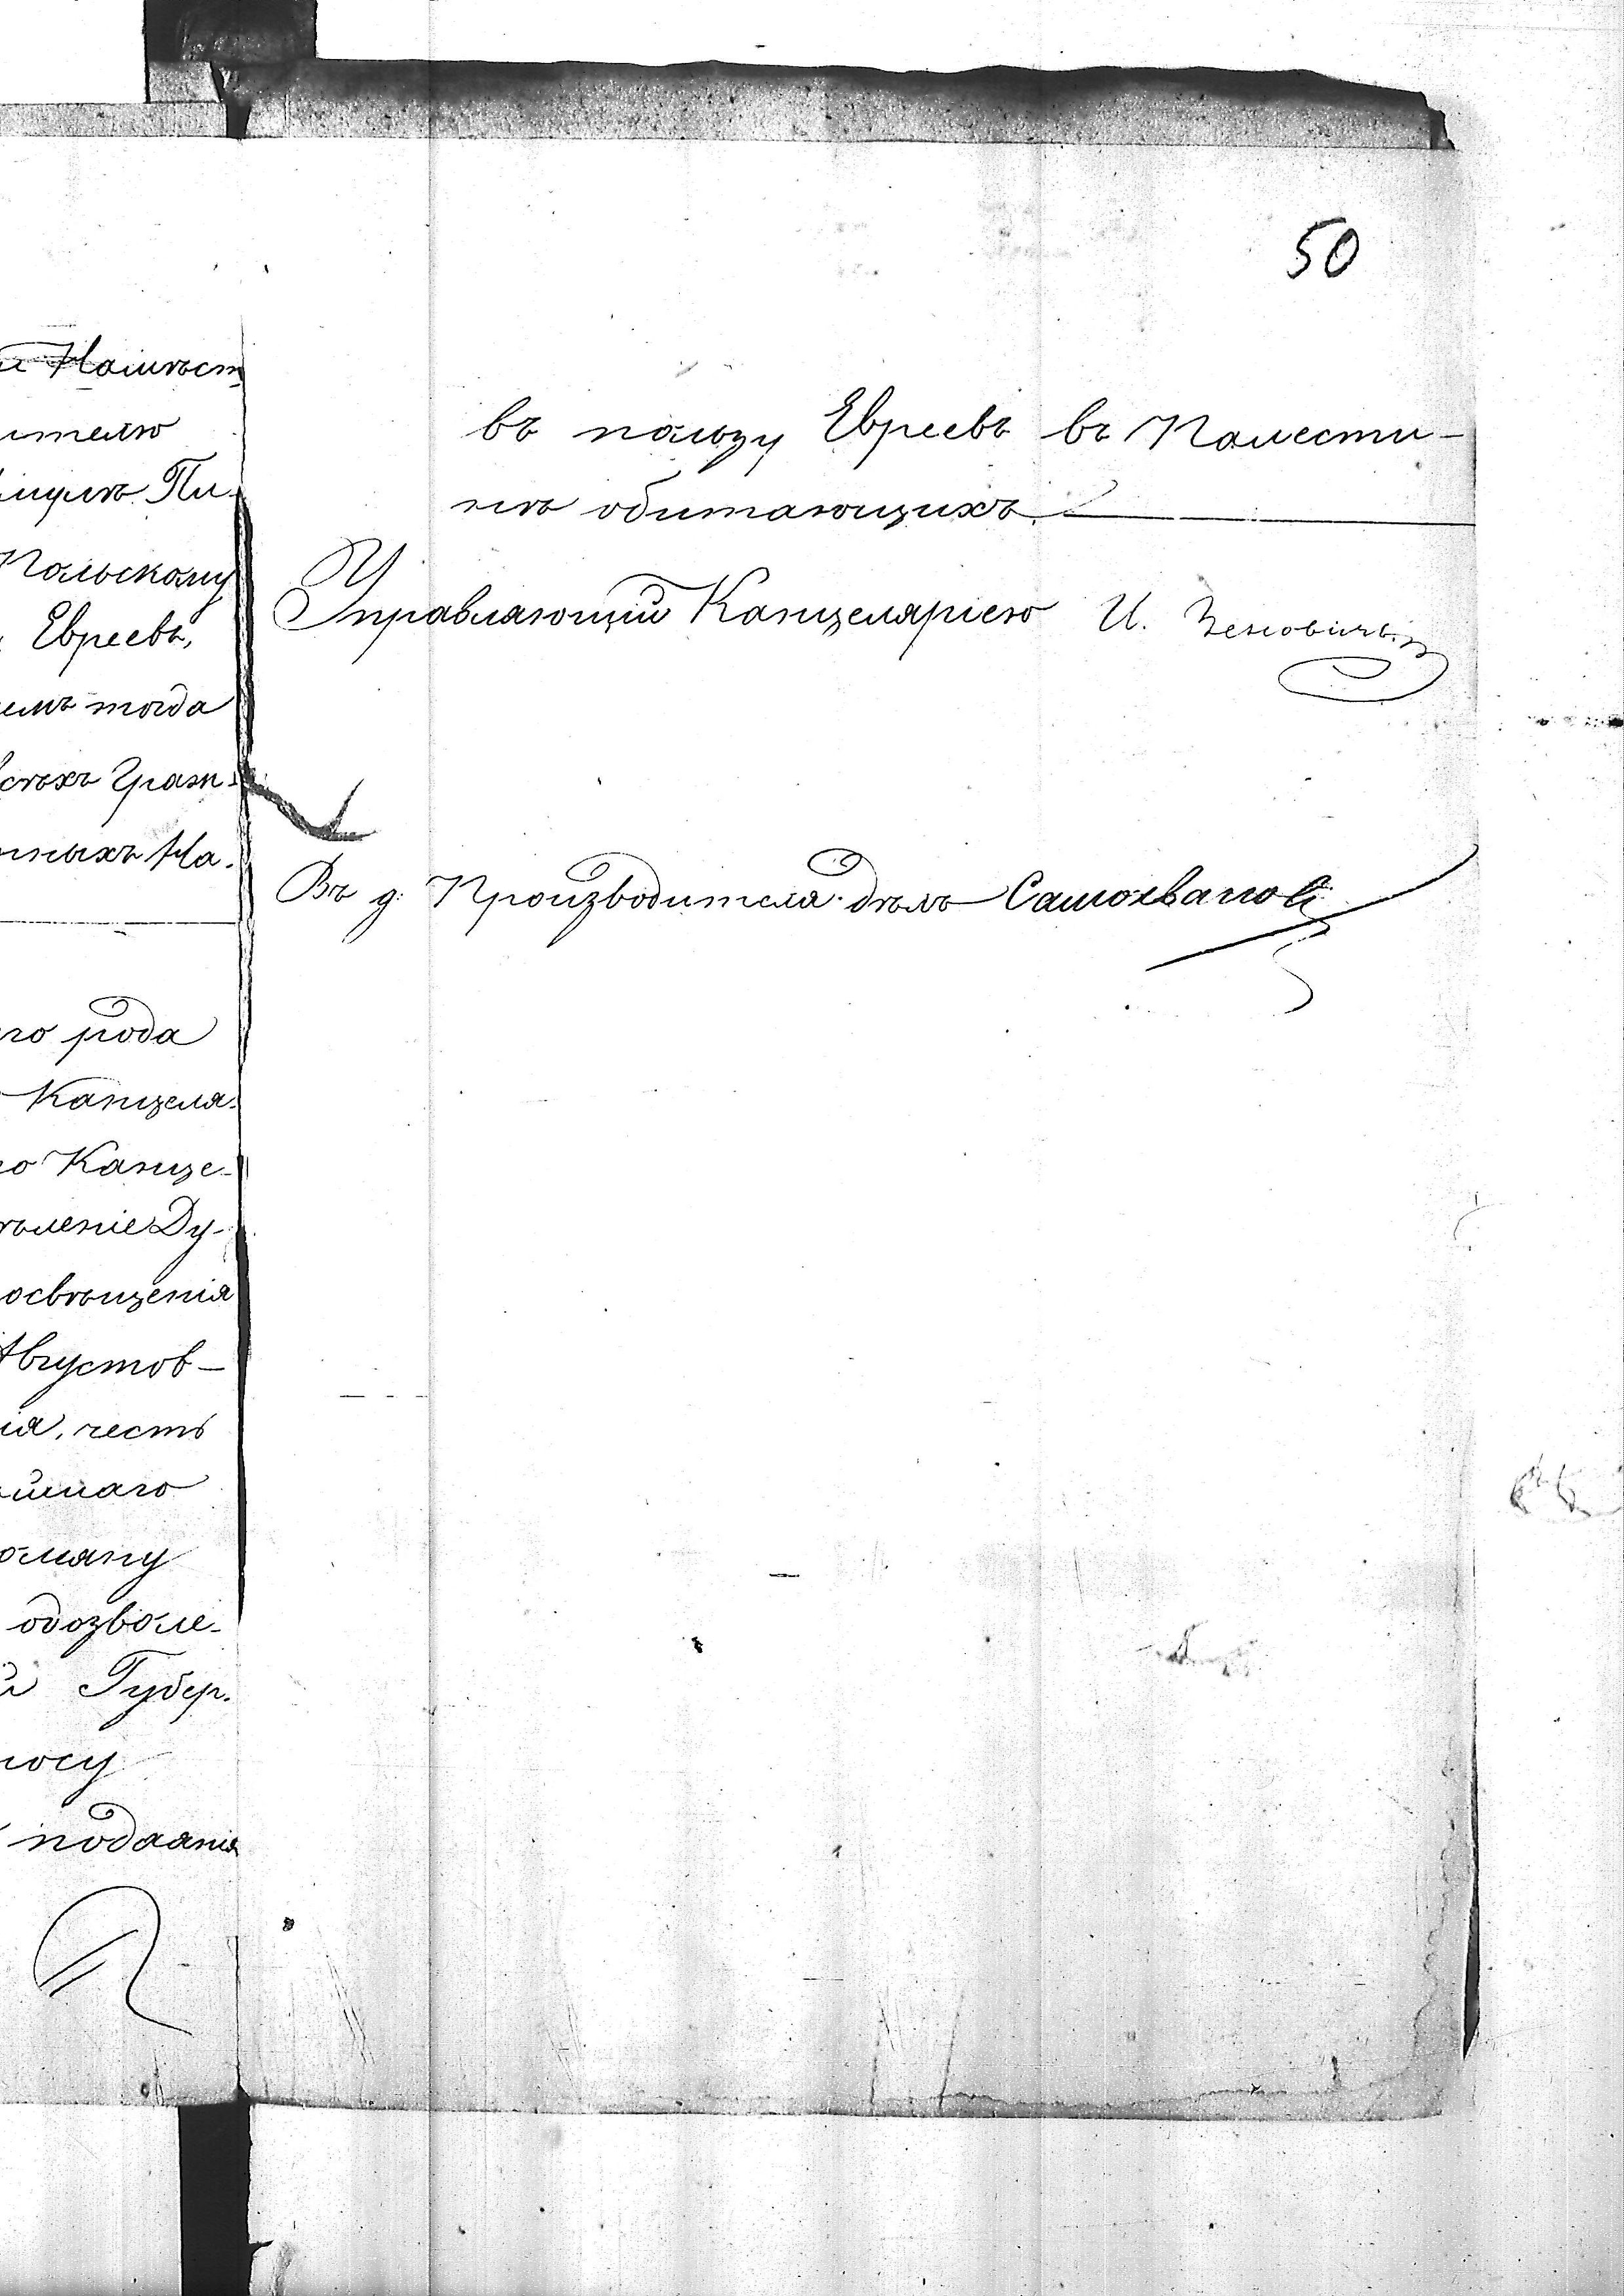 Намѣст
ителю
Пи-
Польскому
Евреевъ,
емъ тогда
всѣхъ Граж-
нныхъ На-
го рода
Канцеля-
ю Канце-
вленіе Ду-
освѣщенія
Августов-
ія, честь
йшаго
оману
одозволе-
й Губер.
носу
подаянія
50
въ пользу Евреевъ въ Палести-
нѣ обитающихъ.
Управляющій Канцеляріею И. Зеновичъ
Въ д. Производителя дѣлъ Самохваловъ